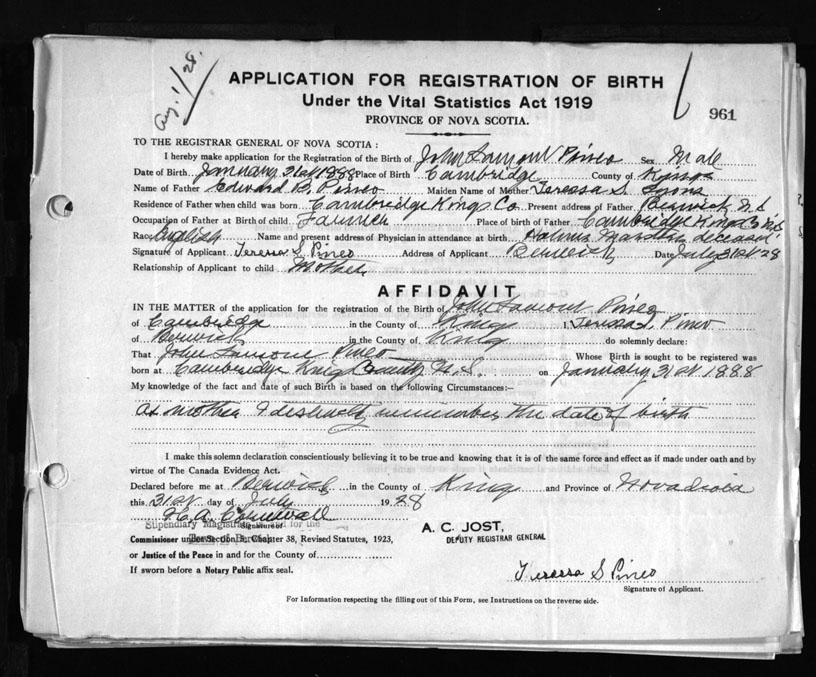 Aug. 1/28.
APPLICATION FOR REGISTRATION OF BIRTH
Under the Vital Statistics Act 1919
961
PROVINCE OF NOVA SCOTIA.
TO THE REGISTRAR GENERAL OF NOVA SCOTIA :
I hereby make application for the Registration of the Birth of John Lamont Pineo Sex Male
Date of Birth January 31st 1888 Place of Birth Cambridge County of Kings
Name of Father Edward B. Pineo Maiden Name of Mother Teressa S. Lyons
Residence of Father when child was born Cambridge Kings Co. Present address of Father Berwick N.S
Occupation of Father at Birth of child Farmer Place of birth of Father Cambridge Kings Co N.S.
Race English Name and present address of Physician in attendance at birth Masters deceased
Signature of Applicant Teressa S. Pineo Address of Applicant Berwick Date July 31st 28
Relationship of Applicant to child Mother
AFFIDAVIT
IN THE MATTER of the application for the registration of the Birth of John Lamont Pineo
of Cambridge in the County of Kings I, Teressa S. Pineo
of Berwick in the County of Kings do solemnly declare:
That John Lamont Pineo Whose Birth is sought to be registered was
born at Cambridge Kings County N.S. on January 31st 1888
My knowledge of the fact and date of such Birth is based on the following Circumstances:–
As mother I distinctly remember the date of birth
I make this solemn declaration conscientiously believing it to be true and knowing that it is of the same force and effect as if made under oath and by
virtue of The Canada Evidence Act.
Declared before me at Berwick in the County of Kings and Province of Nova Scotia
this 31st day of July 1928
H. A. Cornwall
Signature of
Stipendiary Magistrate in and for the
Town of Berwick
A. C. JOST,
DEPUTY REGISTRAR GENERAL
Commissioner under Section 3, Chapter 38, Revised Statutes, 1923,
or Justice of the Peace in and for the County of
If sworn before a Notary Public affix seal.
Teressa S Pineo
Signature of Applicant.
For Information respecting the filling out of this Form, see Instructions on the reverse side.